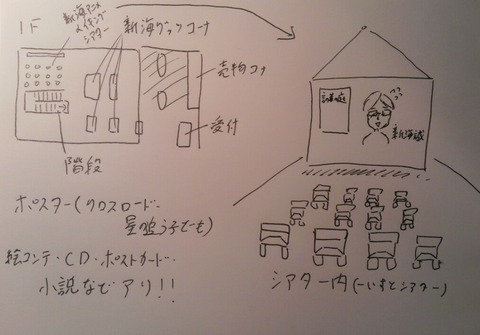 1F
新海アニメ
メイキング
シアター
新海グッズコーナ
売物コーナ
受付
階段
言の葉の庭
新海誠
ポスター(クロスロード・
星追う子ども)
絵コンテ・CD・ポストカード・
小説などアリ!!
シアター内(ーいすとシアター)